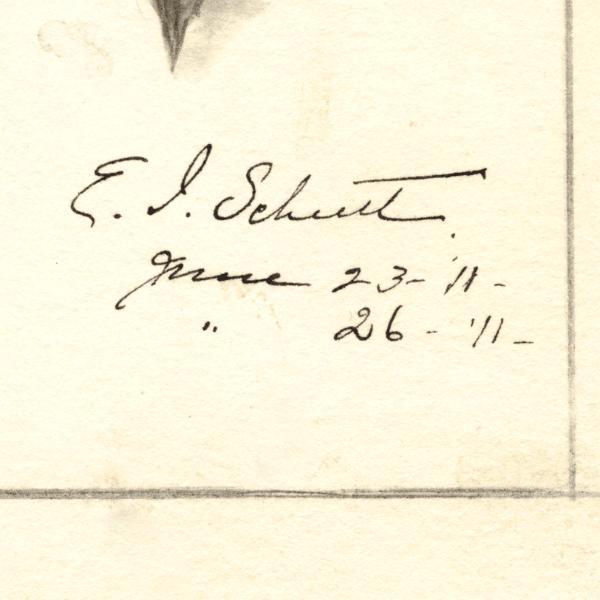 E. I. Schutt.
June 23-'11-
" 26-'11-